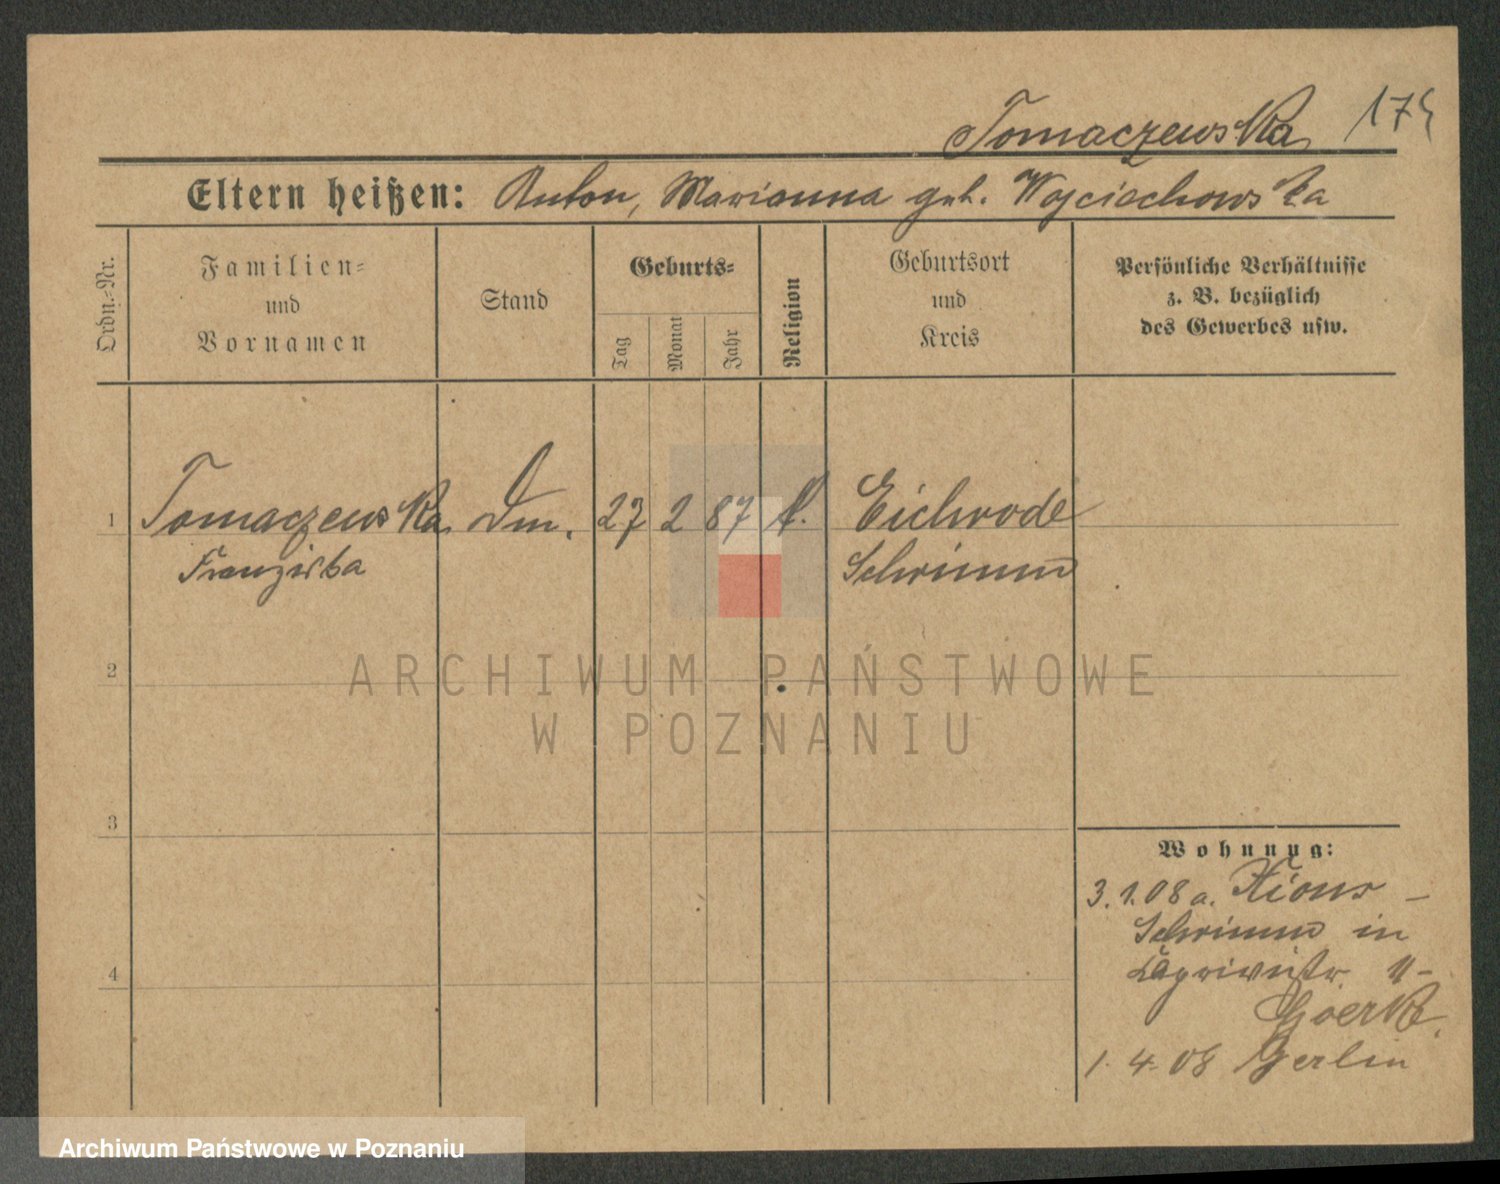 Tomaczewska 174
Eltern heißen: Anton, Marianna geb. Wojciechowska
Ordn.-Nr.
Familien-
und
Vornamen
Stand
Geburts-
Tag
Monat
Jahr
Religion
Geburtsort
und
Kreis
Persönliche Verhältnisse
z. B. bezüglich
des Gewerbes usw.
1 Tomaczewska Dm. 27 2 87 k. Eichrode
Franziska Schrimm
2
ARCHIWUM PAŃSTWOWE
W POZNANIU
3
Wohnung:
3.1.08 a. Xions -
Schrimm in
4
Caprivistr. 11-
1.4.08 Berlin
Archiwum Państwowe w Poznaniu